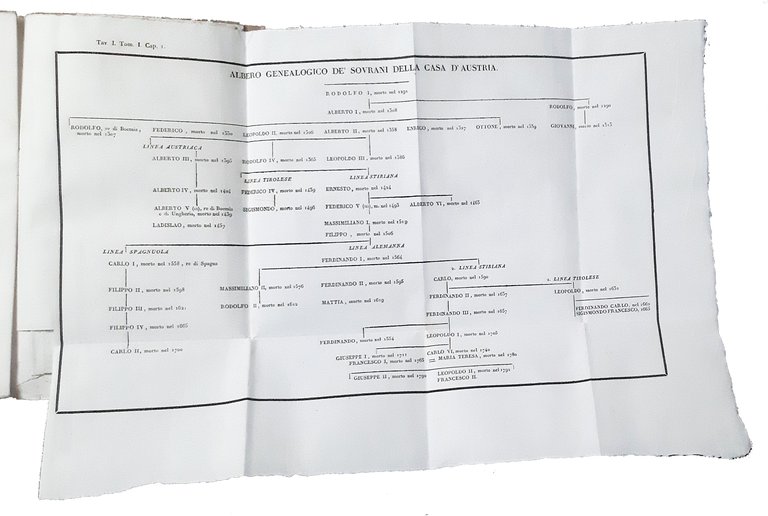 Tav. I. Tom. I. Cap. 1.
ALBERO GENEALOGICO DE' SOVRANI DELLA CASA D'AUSTRIA.
RODOLFO I, morto nel 1291
ALBERTO I, morto nel 1308
RODOLFO, morto nel 1290
RODOLFO, re di Boemia,
morto nel 1307
FEDERICO, morto nel 1330
LEOPOLDO II, morto nel 1326
ALBERTO II, morto nel 1358
ENRICO, morto nel 1327
OTTONE, morto nel 1339
GIOVANNI, morto nel 1313
LINEA AUSTRIACA
ALBERTO III, morto nel 1395
RODOLFO IV, morto nel 1365
LEOPOLDO III, morto nel 1386
LINEA TIROLESE
LINEA STIRIANA
ALBERTO IV, morto nel 1404
FEDERICO IV, morto nel 1439
ERNESTO, morto nel 1424
ALBERTO V (II), re di Boemia
e di Ungheria, morto nel 1439
SIGISMONDO, morto nel 1496
FEDERICO V (III), m. nel 1493
ALBERTO VI, morto nel 1463
LADISLAO, morto nel 1457
MASSIMILIANO I, morto nel 1519
FILIPPO, morto nel 1506
LINEA SPAGNUOLA
LINEA ALEMANNA
CARLO I, morto nel 1558, re di Spagna
FERDINANDO I, morto nel 1564
2. LINEA STIRIANA
2. LINEA TIROLESE
FILIPPO II, morto nel 1598
MASSIMILIANO II, morto nel 1576
FERDINANDO II, morto nel 1595
CARLO, morto nel 1590
RODOLFO II, morto nel 1612
MATTIA, morto nel 1619
FERDINANDO II, morto nel 1637
LEOPOLDO, morto nel 1632
FILIPPO III, morto nel 1621
FERDINANDO III, morto nel 1657
FERDINANDO CARLO, nel 1662
SIGISMONDO FRANCESCO, 1665
FILIPPO IV, morto nel 1665
FERDINANDO, morto nel 1654
LEOPOLDO I, morto nel 1705
CARLO II, morto nel 1700
GIUSEPPE I, morto nel 1711
CARLO VI, morto nel 1740
FRANCESCO I, morto nel 1765 = MARIA TERESA, morto nel 1780
GIUSEPPE II, morto nel 1790
LEOPOLDO II, morto nel 1792
FRANCESCO II.